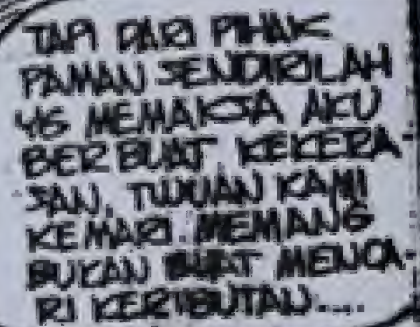 TAPI DARI PIHAK
PAMAN SENDIRILAH
YG MEMAKSA AKU
BERBUAT KEKERA-
SAN, TUJUAN KAMI
KEMARI MEMANG
BUKAN BUAT MENCA-
RI KERIBUTAN....